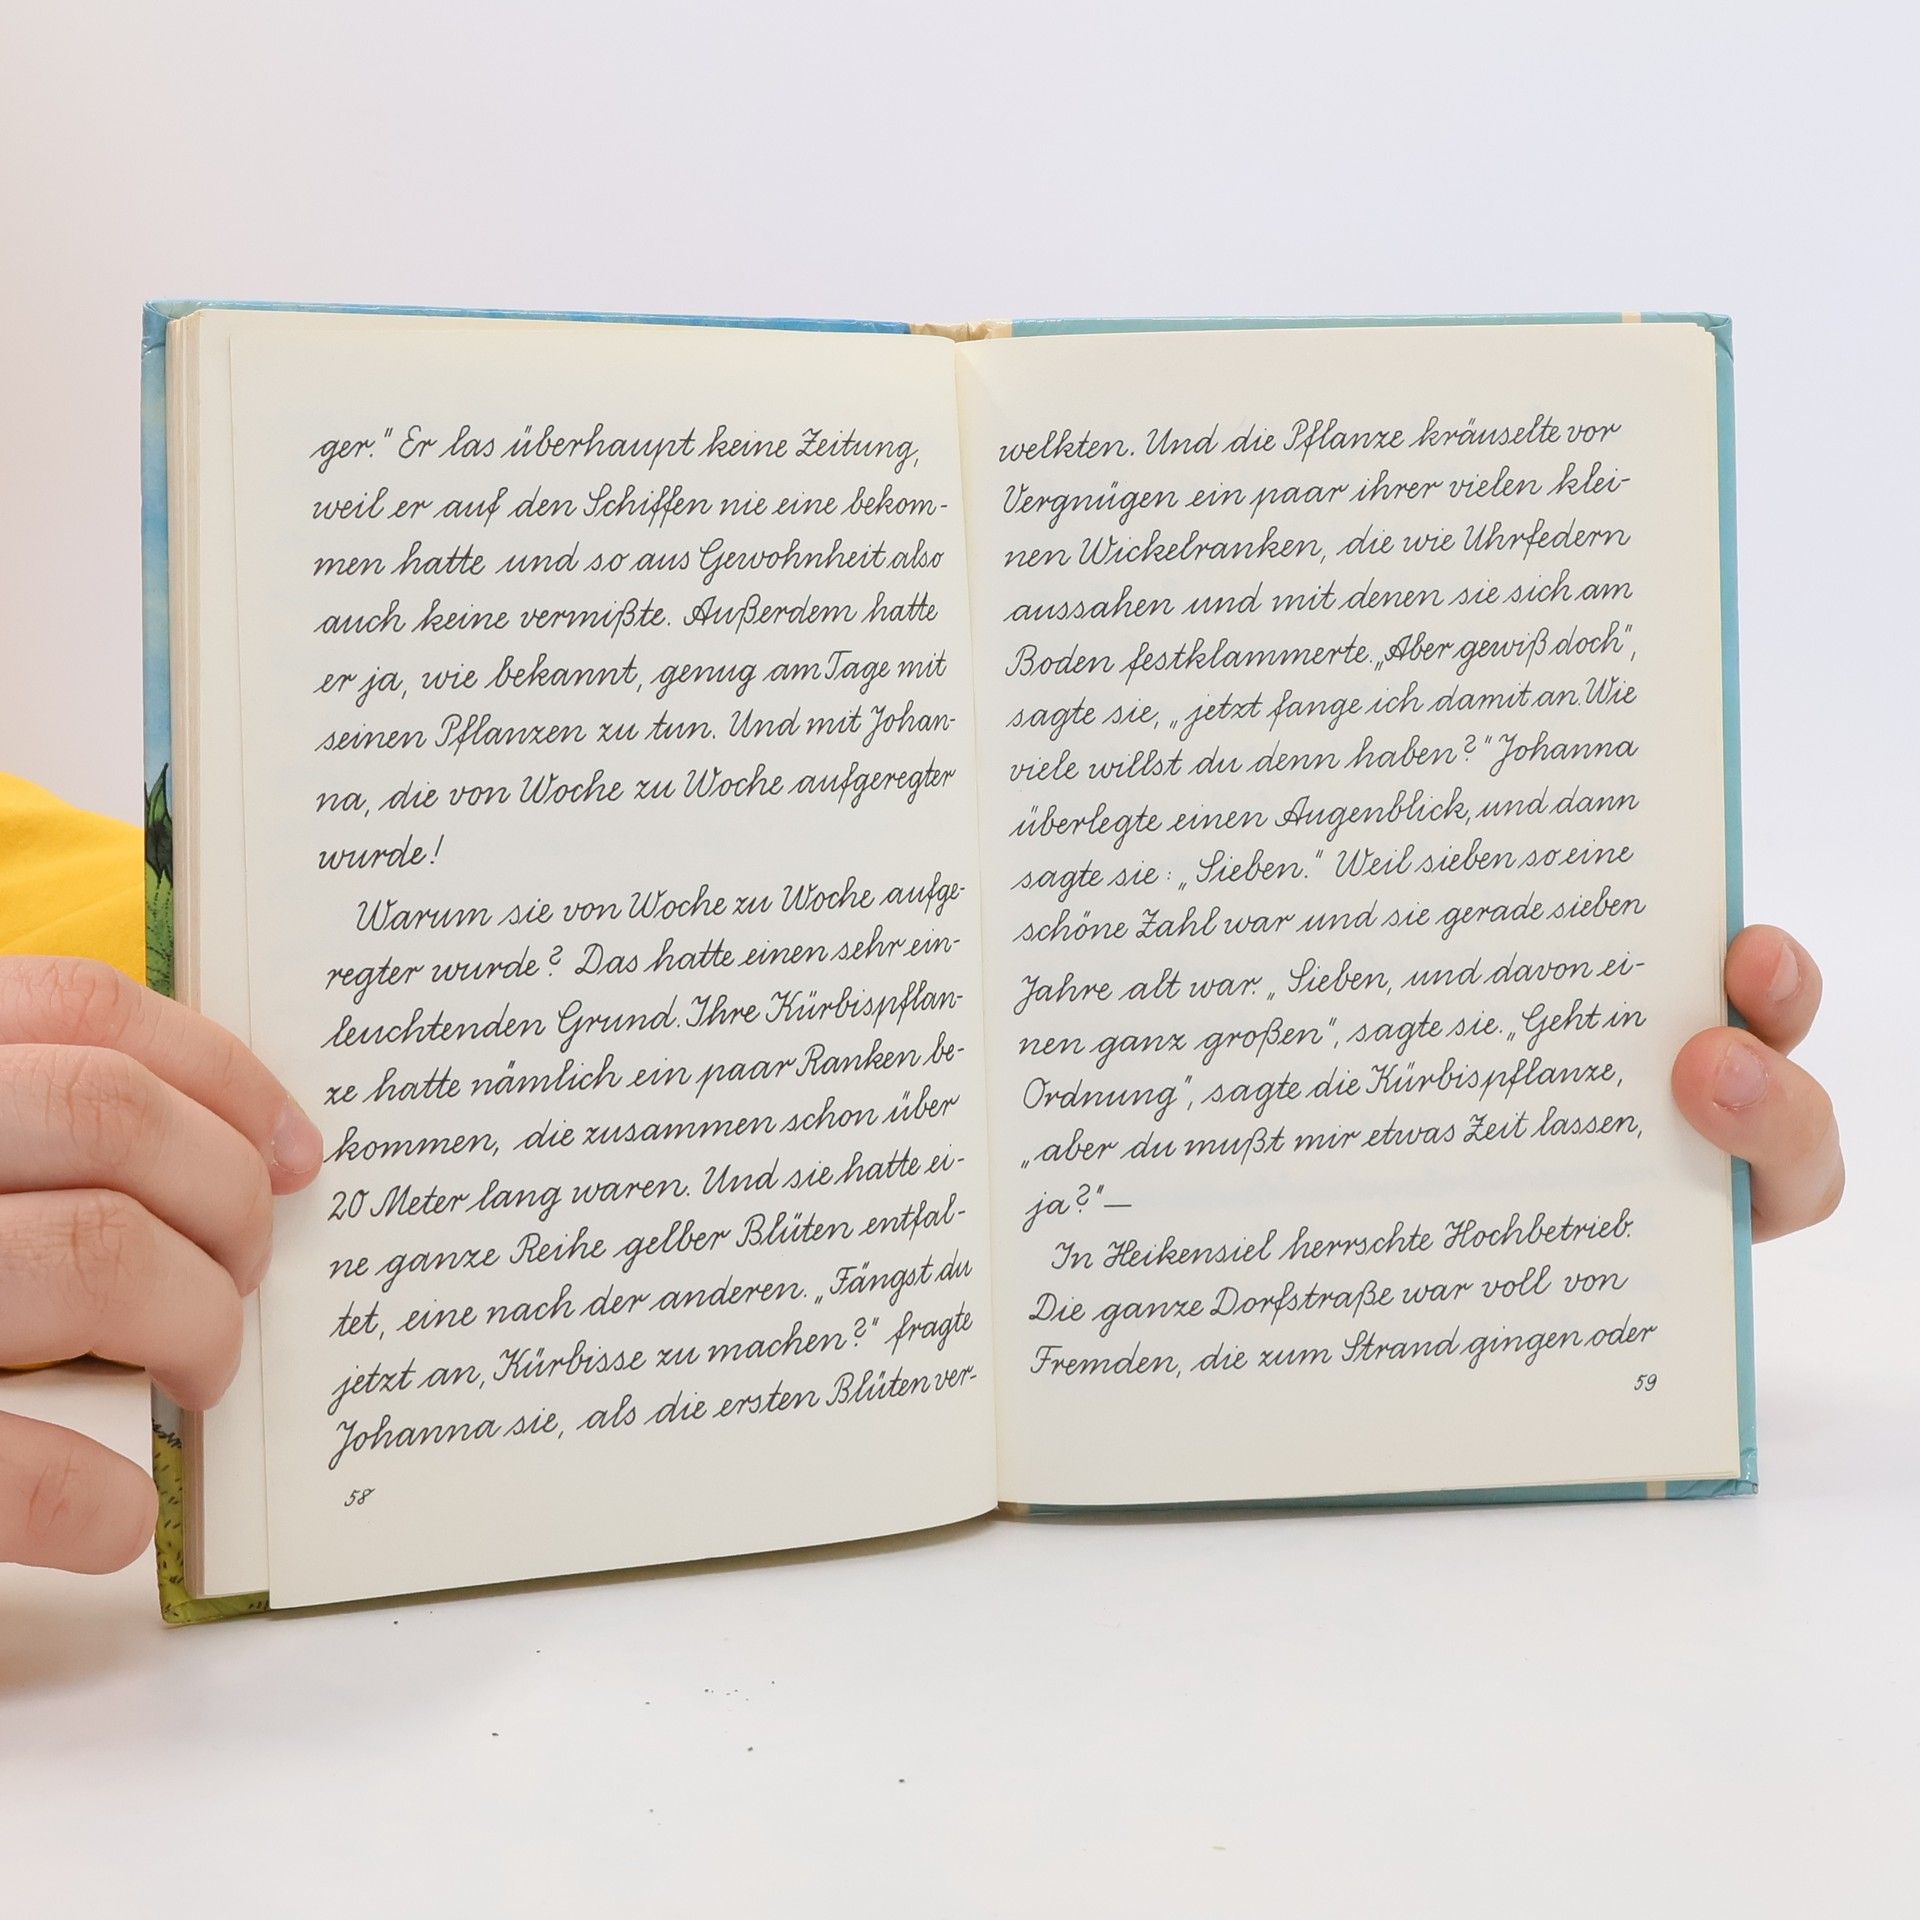 ger." Er las überhaupt keine Zeitung,
weil er auf den Schiffen nie eine bekom-
men hatte und so aus Gewohnheit also
auch keine vermißte. Außerdem hatte
er ja, wie bekannt, genug am Tage mit
seinen Pflanzen zu tun. Und mit Johan-
na, die von Woche zu Woche aufgeregter
wurde!
Warum sie von Woche zu Woche aufge-
regter wurde? Das hatte einen sehr ein-
leuchtenden Grund. Ihre Kürbispflan-
ze hatte nämlich ein paar Ranken be-
kommen, die zusammen schon über
20 Meter lang waren. Und sie hatte ei-
ne ganze Reihe gelber Blüten entfal-
tet, eine nach der anderen. „Fängst du
jetzt an, Kürbisse zu machen?" fragte
Johanna sie, als die ersten Blüten ver-
58
welkten. Und die Pflanze kräuselte vor
Vergnügen ein paar ihrer vielen klei-
nen Wickelranken, die wie Uhrfedern
aussahen und mit denen sie sich am
Boden festklammerte. „Aber gewiß doch",
sagte sie, „jetzt fange ich damit an. Wie
viele willst du denn haben?" Johanna
überlegte einen Augenblick, und dann
sagte sie: „Sieben." Weil sieben so eine
schöne Zahl war und sie gerade sieben
Jahre alt war. „Sieben, und davon ei-
nen ganz großen", sagte sie. „Geht in
Ordnung", sagte die Kürbispflanze,
„aber du mußt mir etwas Zeit lassen,
ja?" —
In Heikensiel herrschte Hochbetrieb.
Die ganze Dorfstraße war voll von
Fremden, die zum Strand gingen oder
59